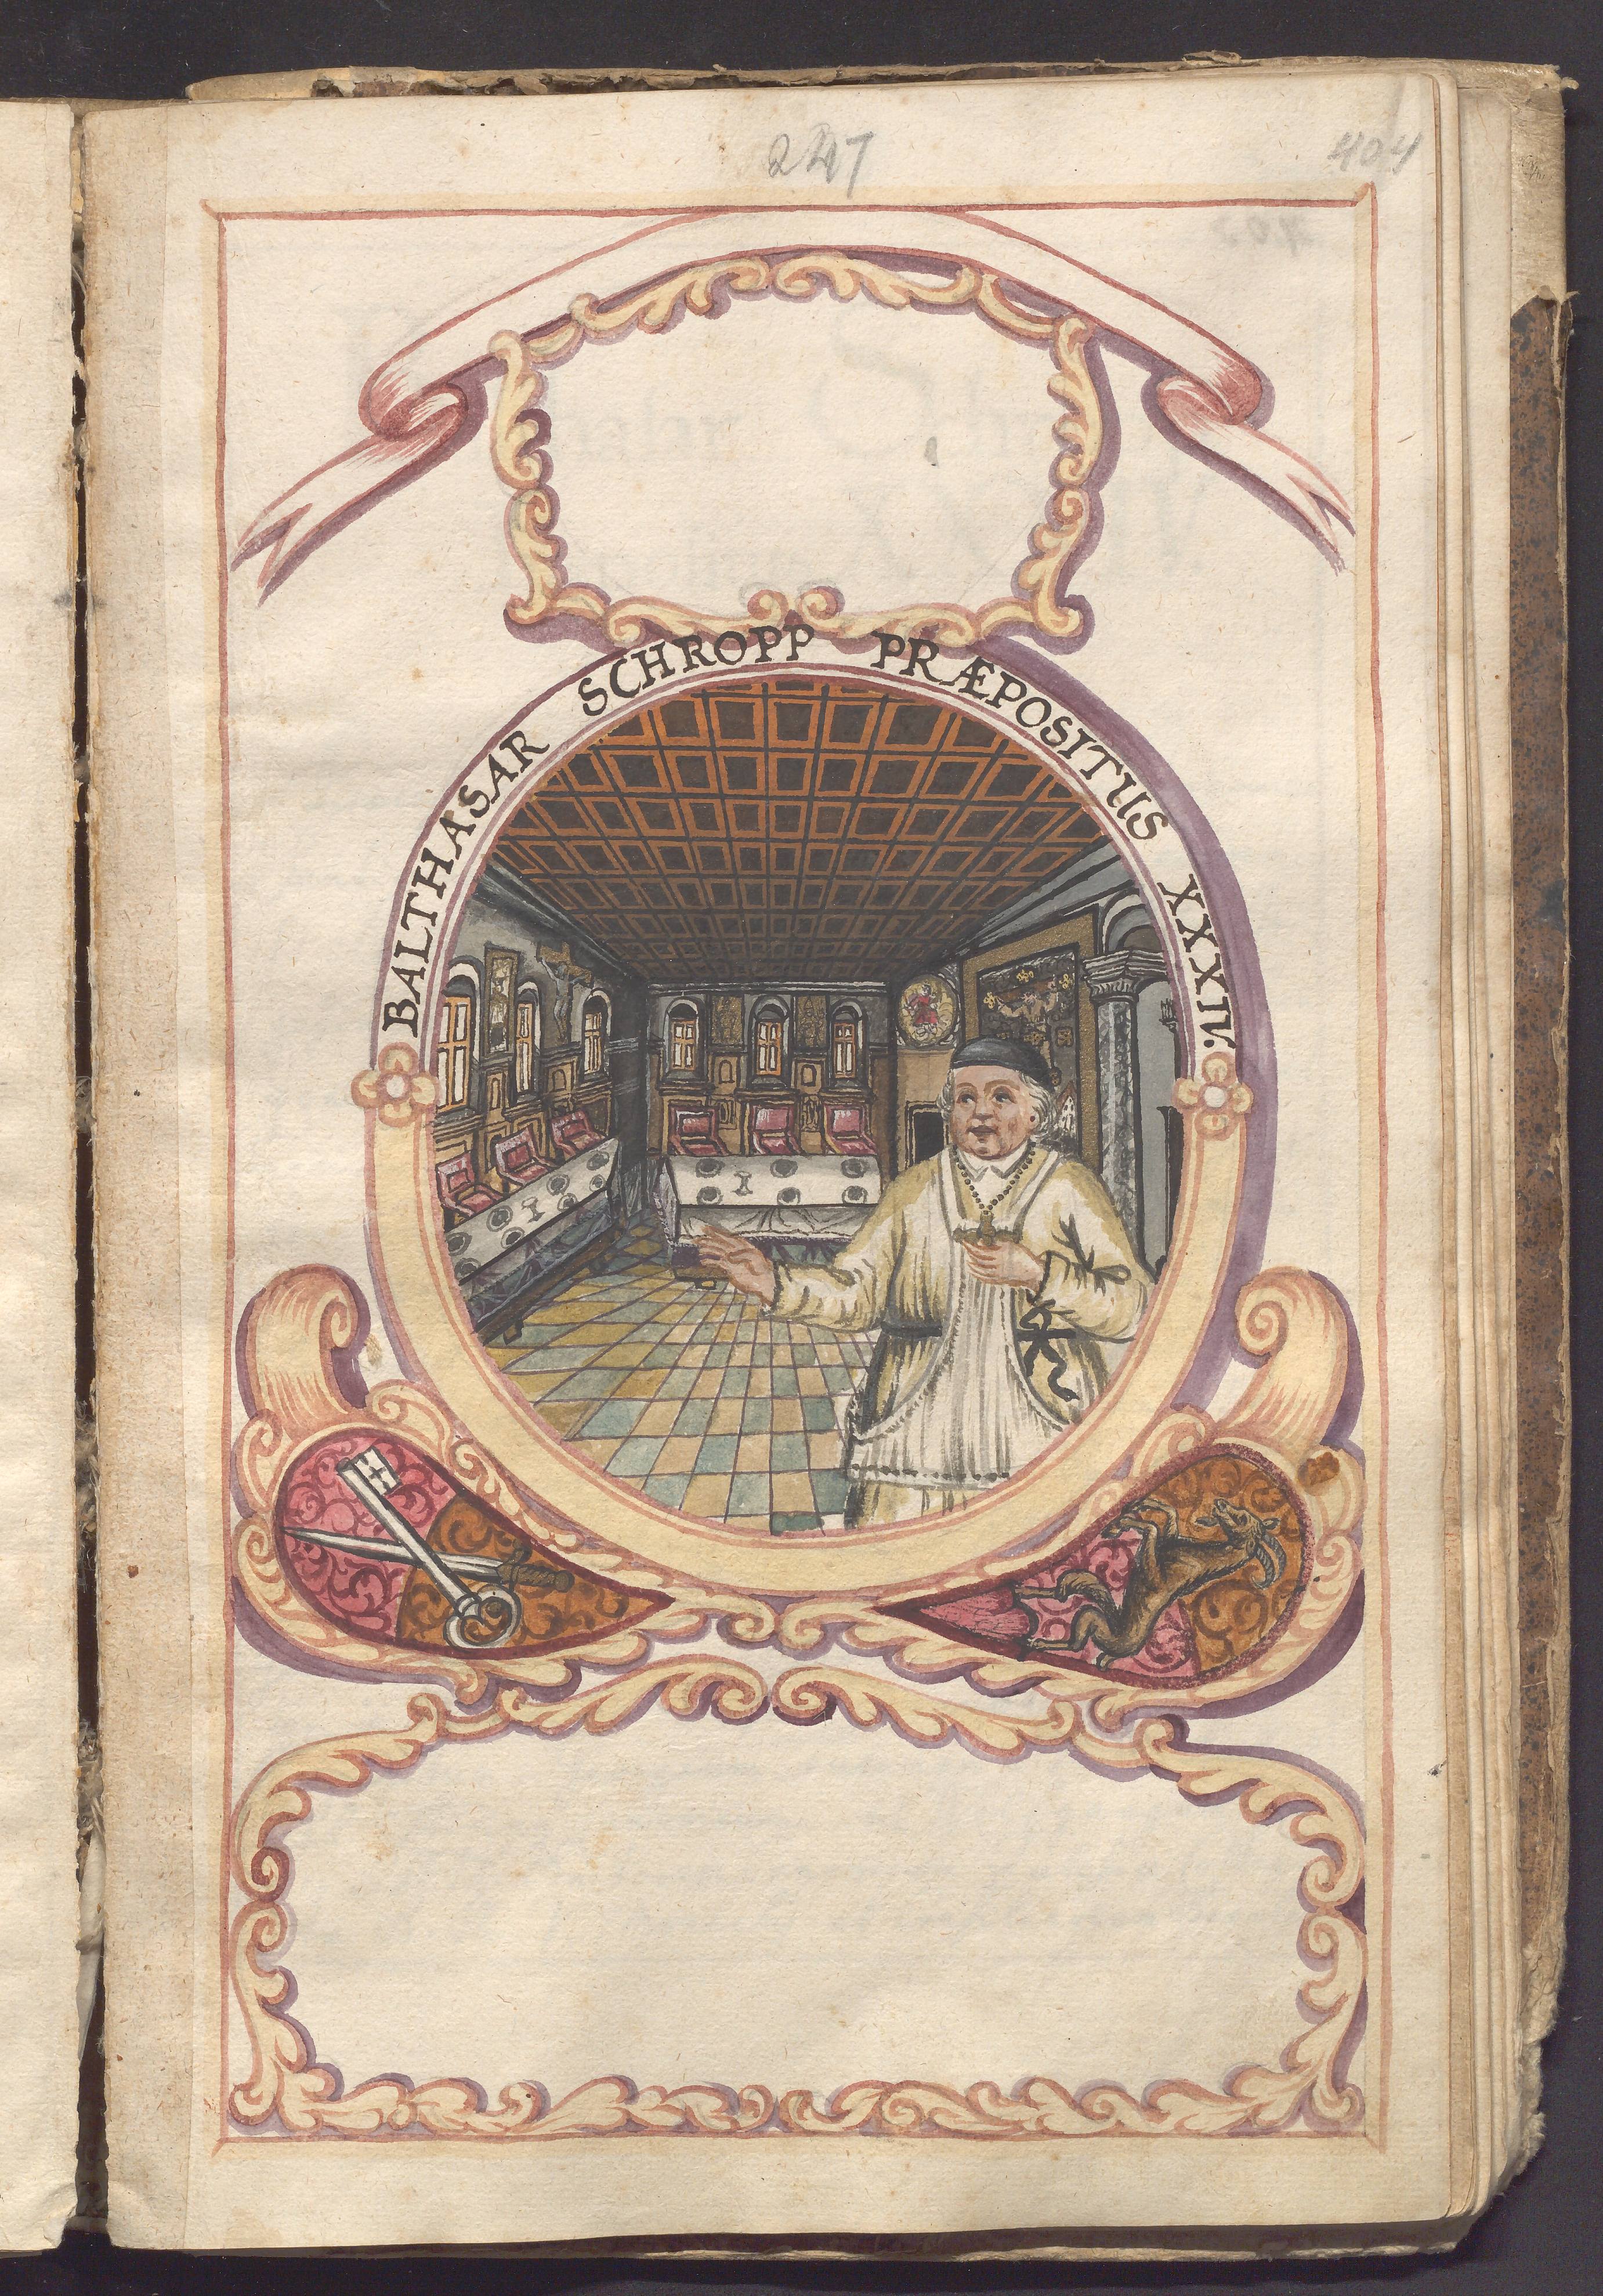 247
404
BALTHASAR SCHROPP PRÆPOSITUS XXXIV.